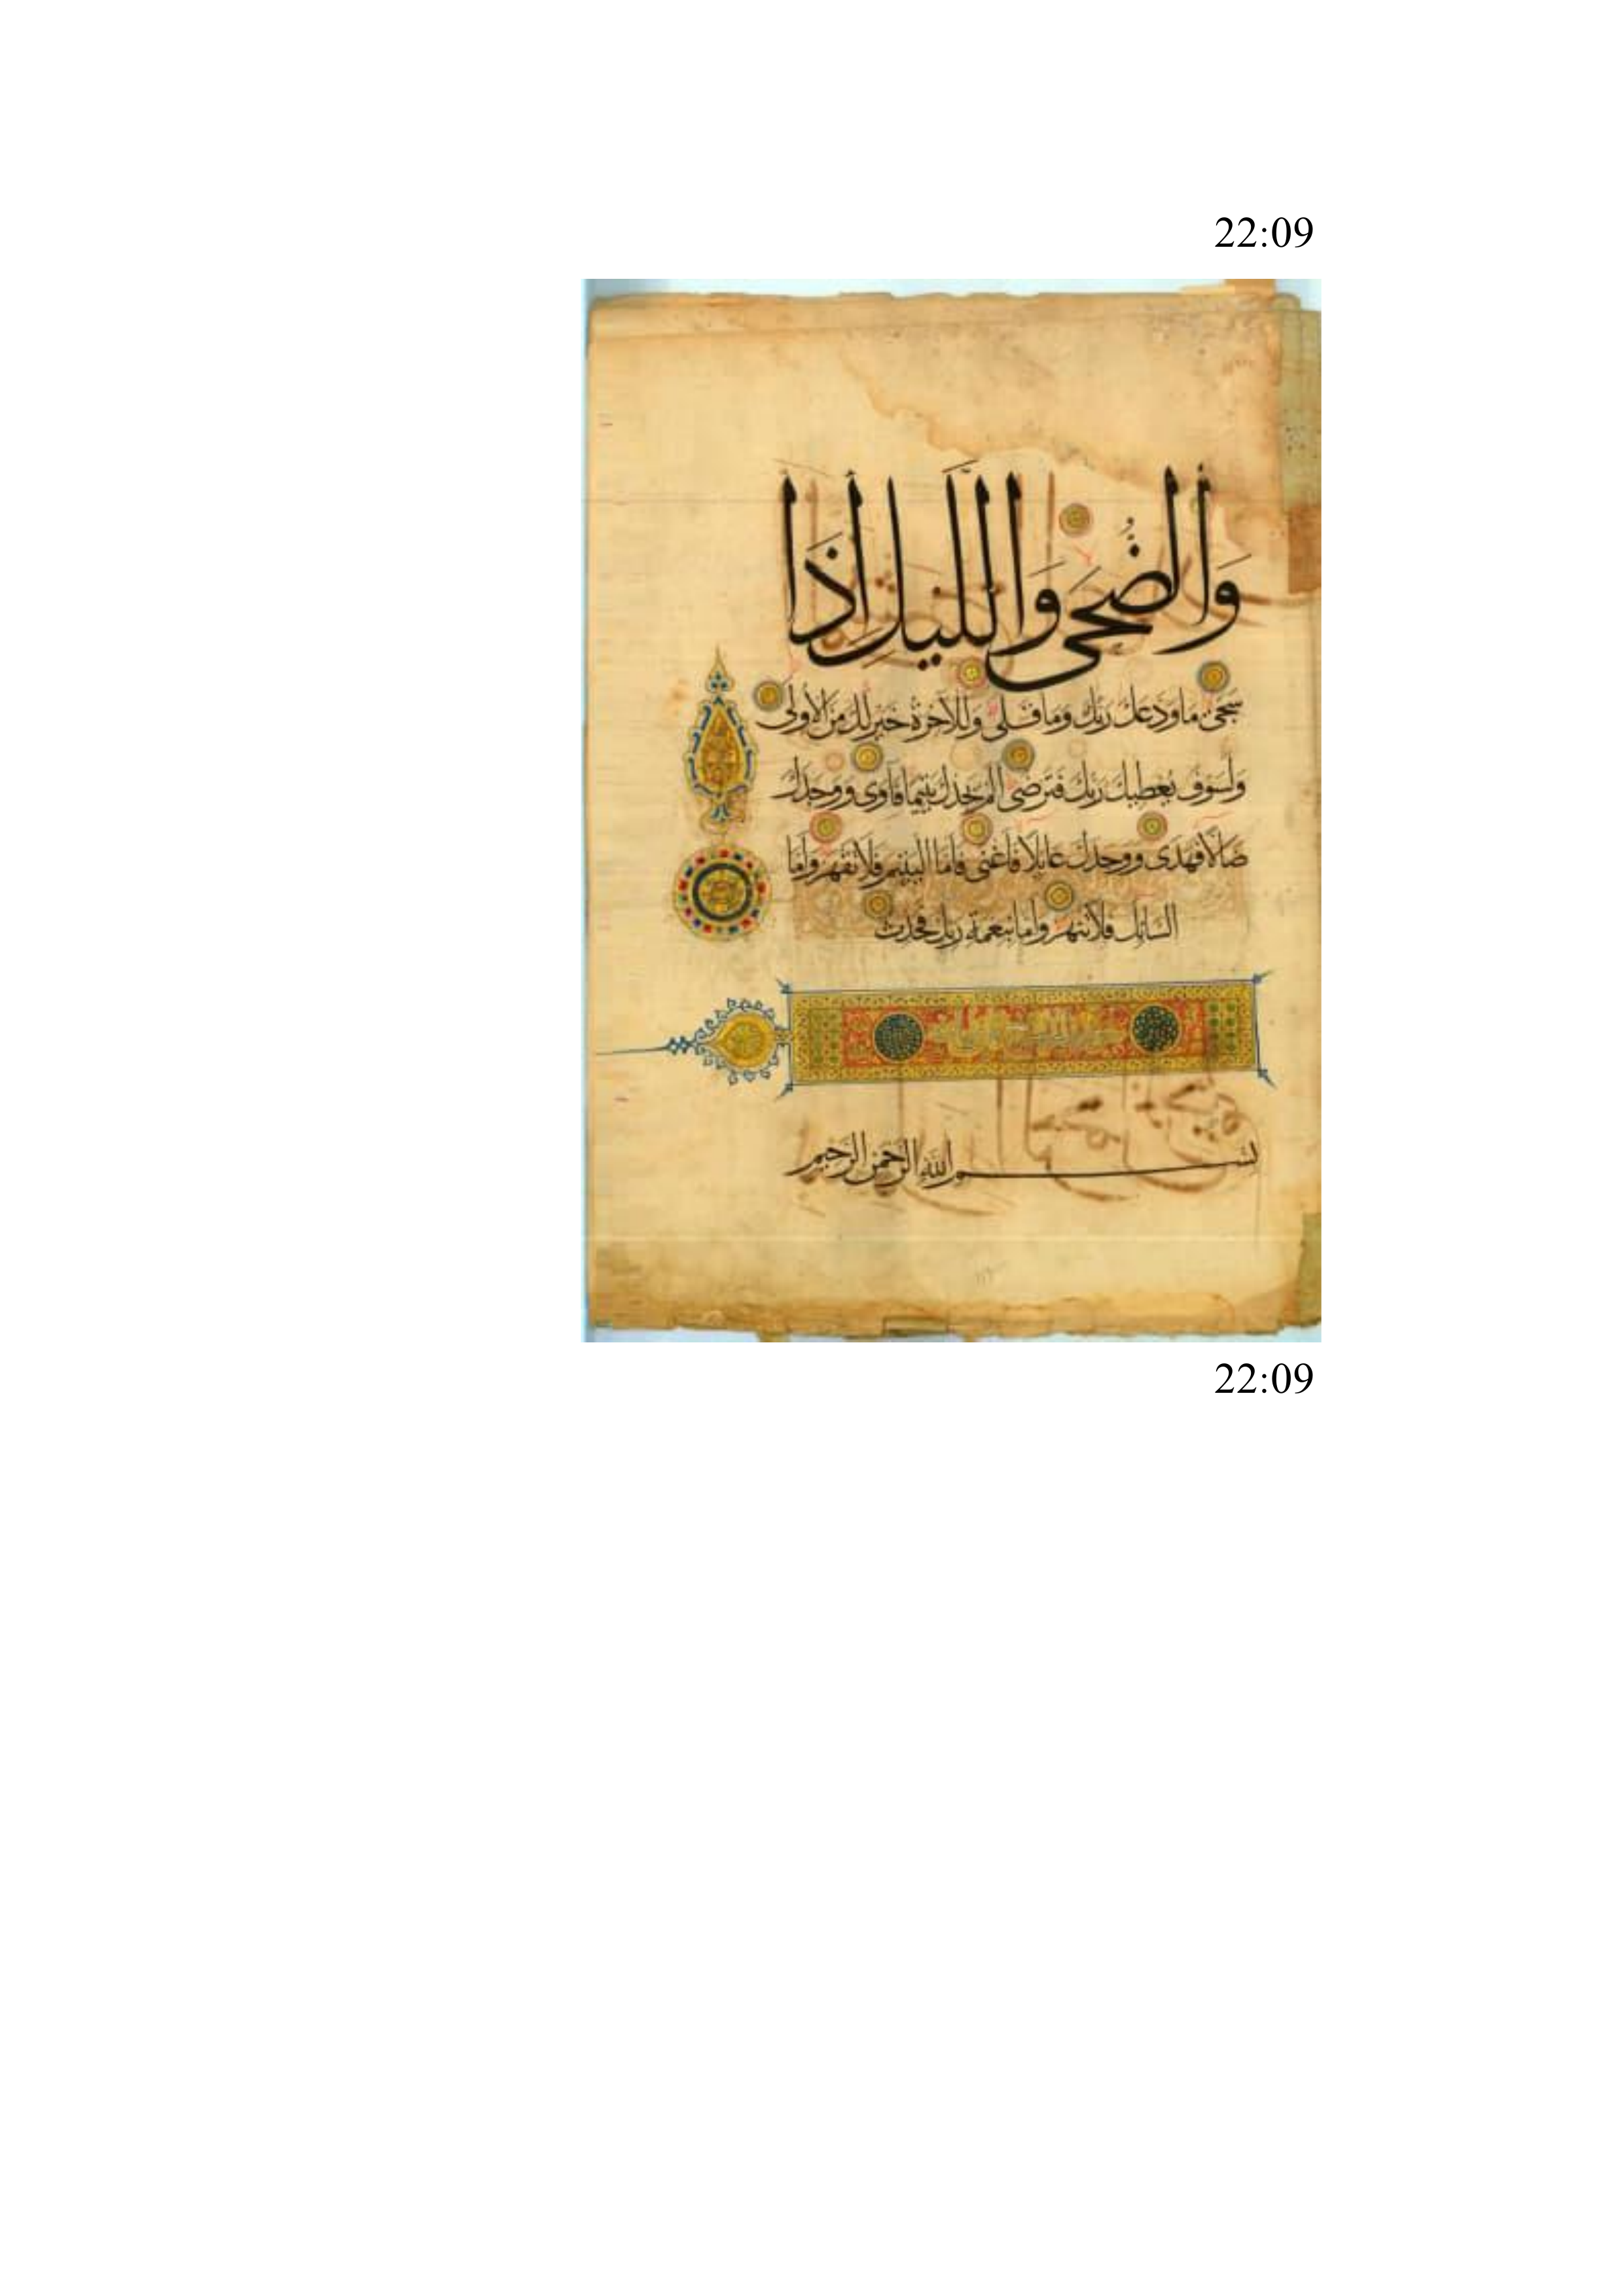 22:09
وَالضُّحَى وَاللَّيلِ أذَا
سَجَى مَاوَدَعَكَ رَبُّكَ وَمَا قَلَى وَلَلْآخِرَةُ خَيْرٌ لَكَ مِنَ الأولَى
وَلَسَوْفَ يُعْطِيكَ رَبُّكَ فَتَرْضَى أَلَمْ يَجِدْكَ يَتِيمًا فَآوَى وَوَجَدَكَ
ضَالًّا فَهَدَى وَوَجَدَكَ عَايِلًا فَأَغْنَى فَأَمَّا اليَتِيمَ فَلَا تَقْهَرْ وَأَمَّا
السَّايِلَ فَلَا تَنْهَرْ وَأَمَّا بِنِعْمَةِ رَبِّكَ فَحَدِّثْ
بسم الله الرحمن الرحيم
22:09